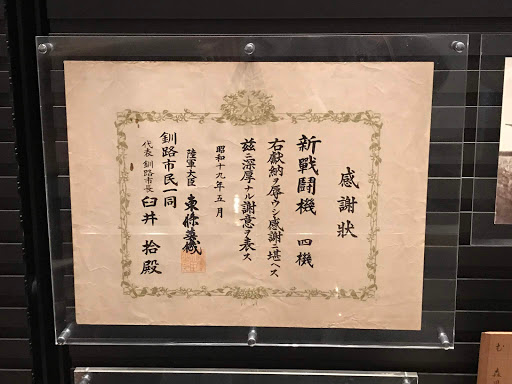 感謝狀
新戰鬪機 四機
右獻納ヲ辱ウシ感謝ニ堪ヘス
玆ニ深厚ナル謝意ヲ表ス
昭和十九年五月
陸軍大臣 東條英機
釧路市民一同
代表 釧路市長 臼井 拾殿